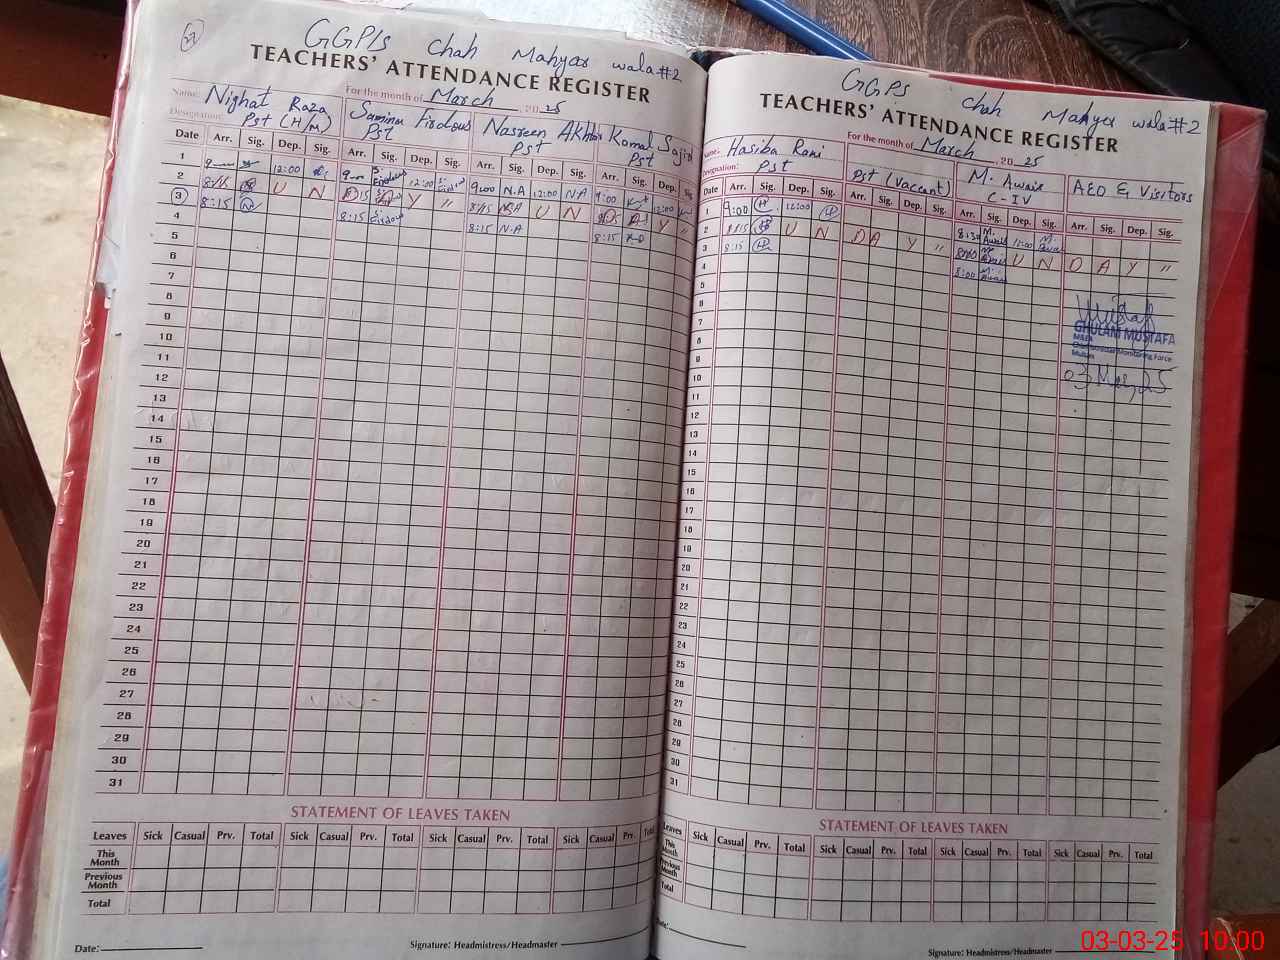 GGPS Chah Mahyar wala #2
TEACHERS' ATTENDANCE REGISTER
Name: Nighat Raza
For the month of March, 2025
Designation: Pst (H/M)
Samina Firdous
Pst
Nasreen Akhtar
Pst
Komal Sajid
Pst
Date Arr. Sig. Dep. Sig. Arr. Sig. Dep. Sig. Arr. Sig. Dep. Sig. Arr. Sig. Dep. Sig.
1 9 12:00 9 S. Firdous 12:00 S. Firdous 9:00 N.A 12:00 N.A 9:00 12:00
2 8:15 U N 8:15 Y " 8:15 N.A U N Y "
3 8:15 N 8:15 S. Firdous 8:15 N.A 8:15
4
5
6
7
8
9
10
11
12
13
14
15
16
17
18
19
20
21
22
23
24
25
26
27
28
29
30
31
STATEMENT OF LEAVES TAKEN
Leaves Sick Casual Prv. Total Sick Casual Prv. Total Sick Casual Prv. Total Sick Casual Prv. Total
This Month
Previous Month
Total
Date:
Signature: Headmistress/Headmaster
GGPS Chah Mahyar wala #2
TEACHERS' ATTENDANCE REGISTER
Name: Hasiba Rani
For the month of March, 2025
Designation: Pst
Pst (Vaccant)
M. Awais
C-IV
AEO & Visitors
Date Arr. Sig. Dep. Sig. Arr. Sig. Dep. Sig. Arr. Sig. Dep. Sig. Arr. Sig. Dep. Sig.
1 9:00 H 12:00 H 8:30 M. Awais 12:00 M. Awais
2 8:15 H U N D A Y " 8:00 M. Awais U N D A Y "
3 8:15 H 8:00 M. Awais
4
5
6
7
8
9
10
11
12
13
14
15
16
17
18
19
20
21
22
23
24
25
26
27
28
29
30
31
GHULAM MUSTAFA
MEA
Monitoring Force
Multan
03 Mar, 25
STATEMENT OF LEAVES TAKEN
Leaves Sick Casual Prv. Total Sick Casual Prv. Total Sick Casual Prv. Total Sick Casual Prv. Total
This Month
Previous Month
Total
Date:
Signature: Headmistress/Headmaster
03-03-25 10:00